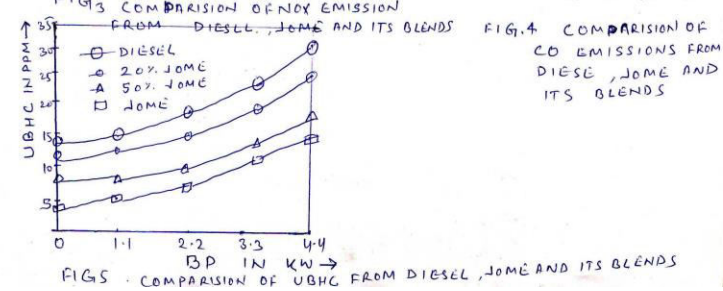 FIG 3 COMPARISION OF NOX EMISSION
FROM DIESEL, JOME AND ITS BLENDS
FIG.4 COMPARISION OF
CO EMISSIONS FROM
DIESE, JOME AND
ITS BLENDS
UBHC IN PPM →
35
30
25
20
15
10
5
DIESEL
20% JOME
50% JOME
JOME
0 1.1 2.2 3.3 4.4
BP IN KW →
FIG5. COMPARISION OF UBHC FROM DIESEL, JOME AND ITS BLENDS